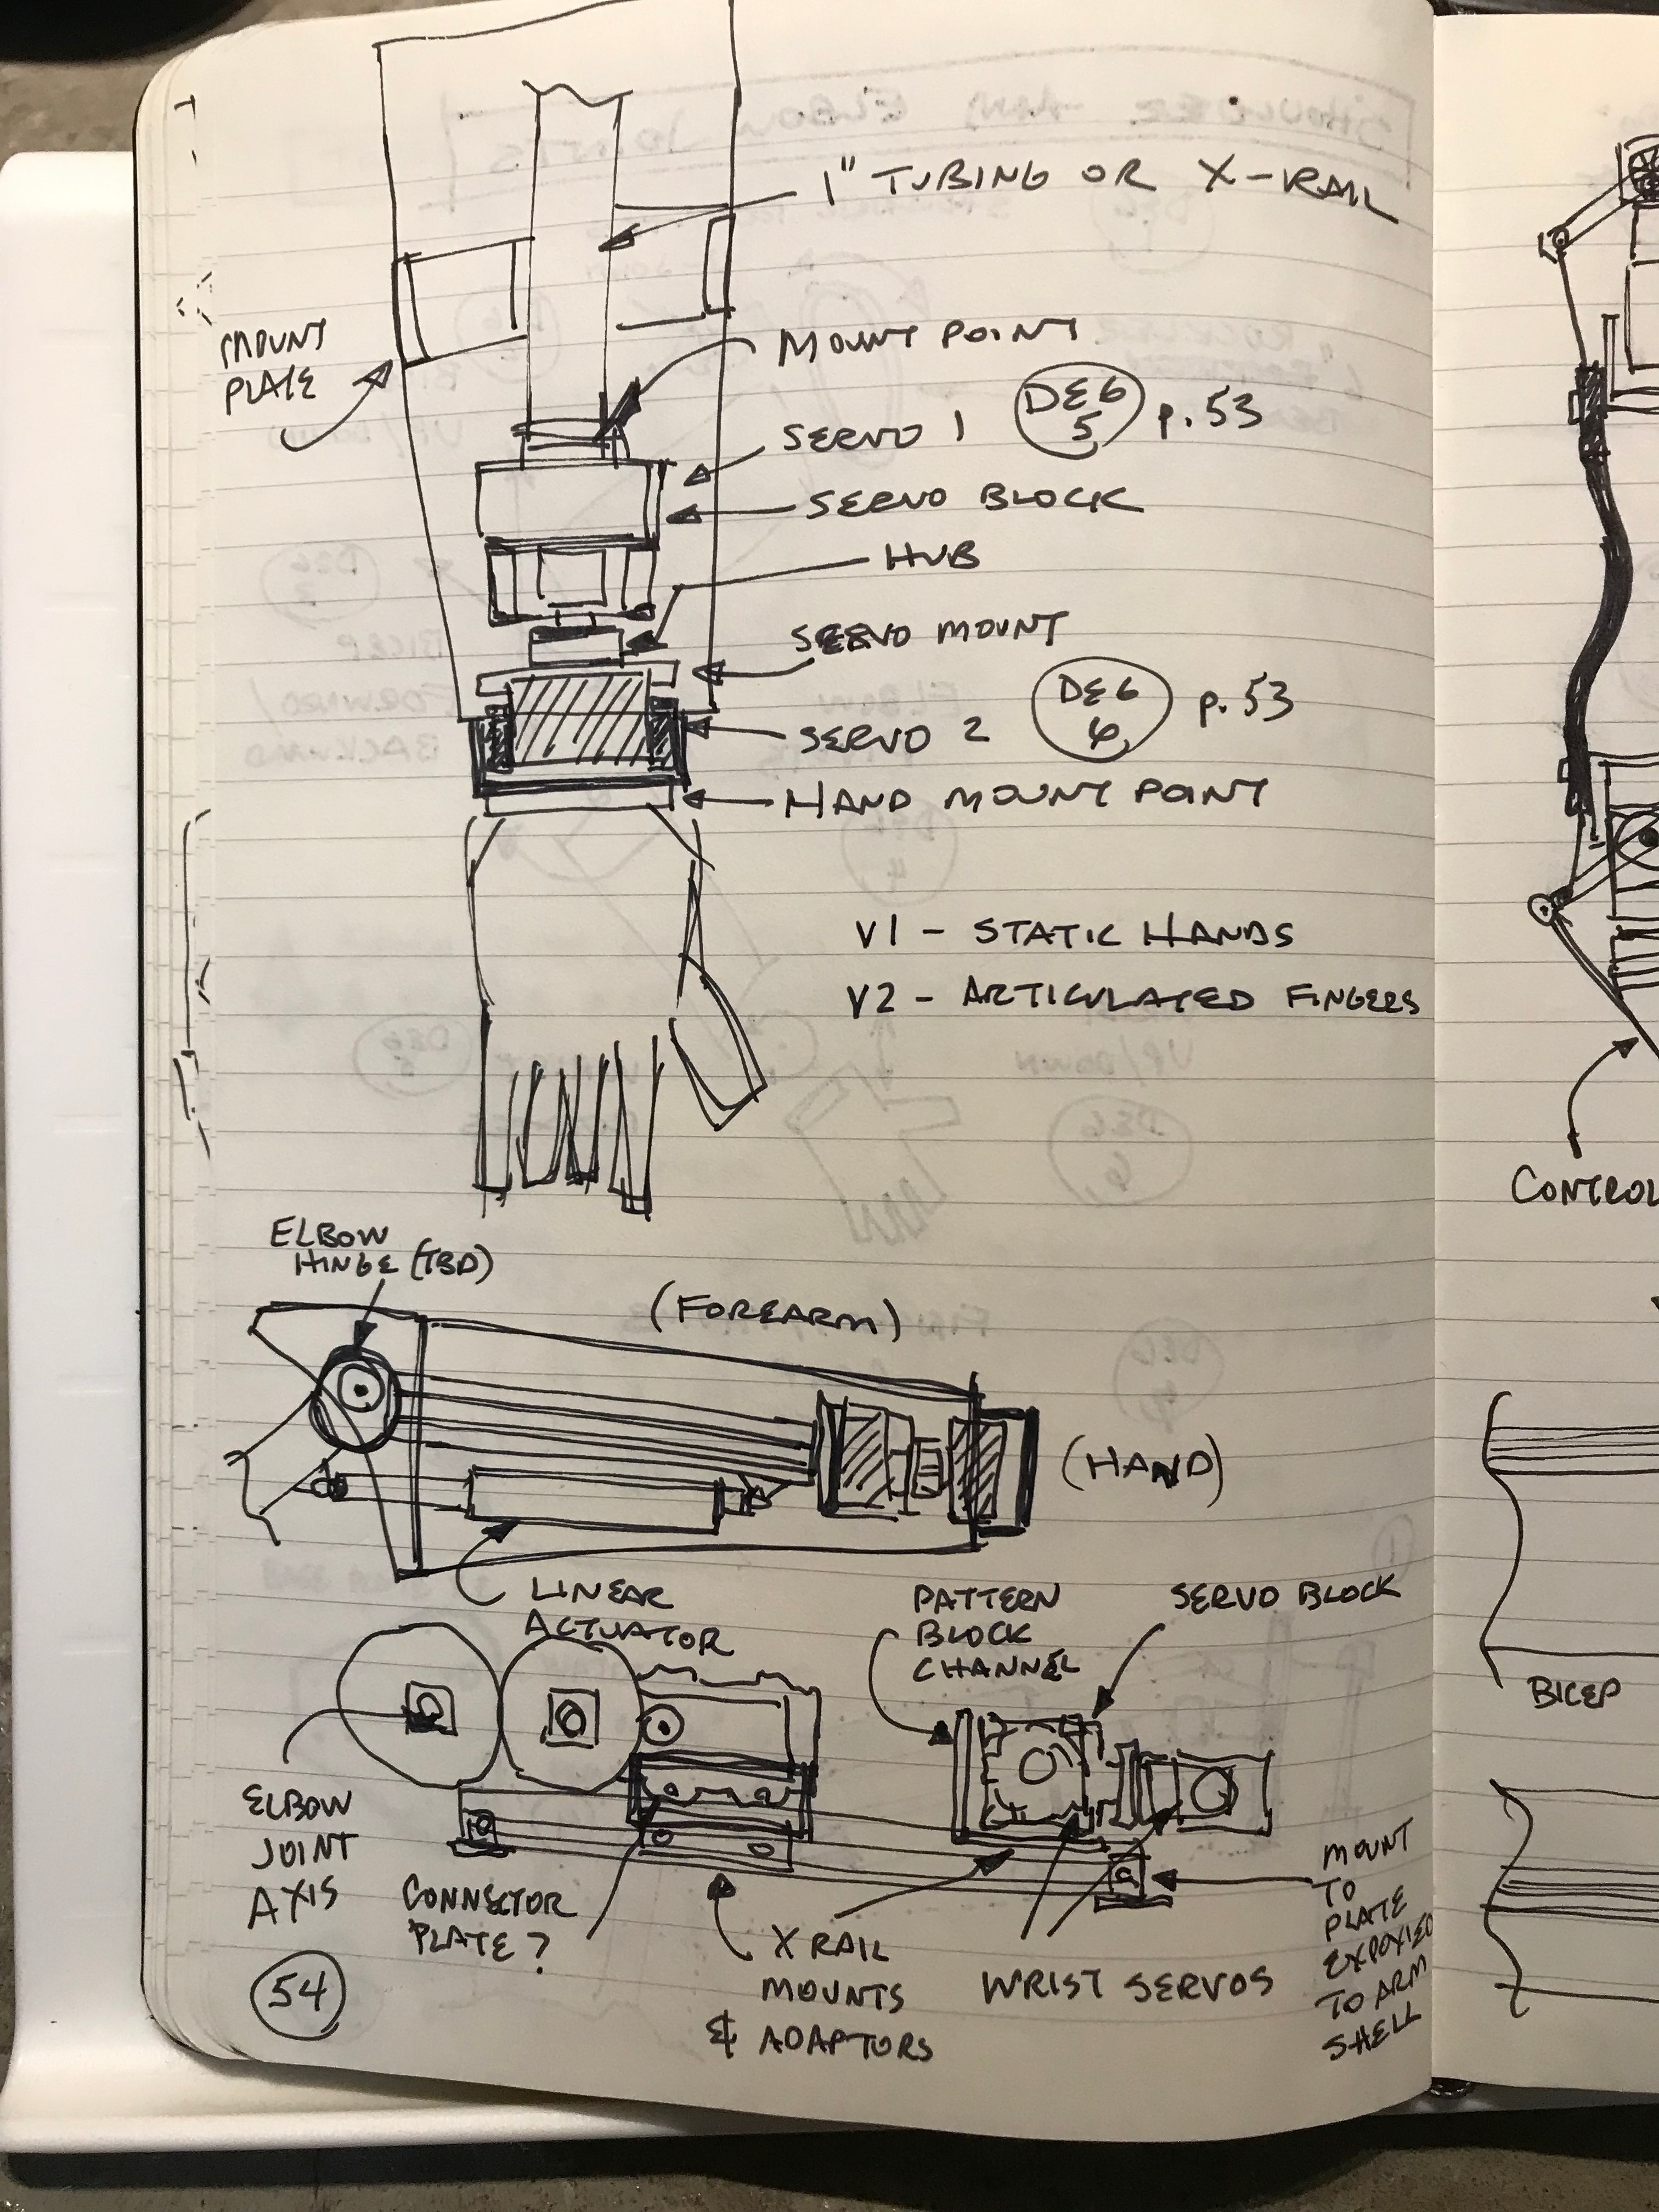 1" TUBING OR X-RAIL
MOUNT
PLATE
MOUNT POINT
SERVO 1 DEG 5 p. 53
SERVO BLOCK
HUB
SERVO MOUNT
SERVO 2 DEG 6 p. 53
HAND MOUNT POINT
V1 - STATIC HANDS
V2 - ARTICULATED FINGERS
CONTROL
ELBOW
HINGE (TBD)
(FOREARM)
(HAND)
LINEAR
ACTUATOR
PATTERN
BLOCK
CHANNEL
SERVO BLOCK
BICEP
ELBOW
JOINT
AXIS
CONNECTOR
PLATE?
X RAIL
MOUNTS
& ADAPTORS
WRIST SERVOS
MOUNT
TO
PLATE
EXPOXIED
TO ARM
SHELL
54